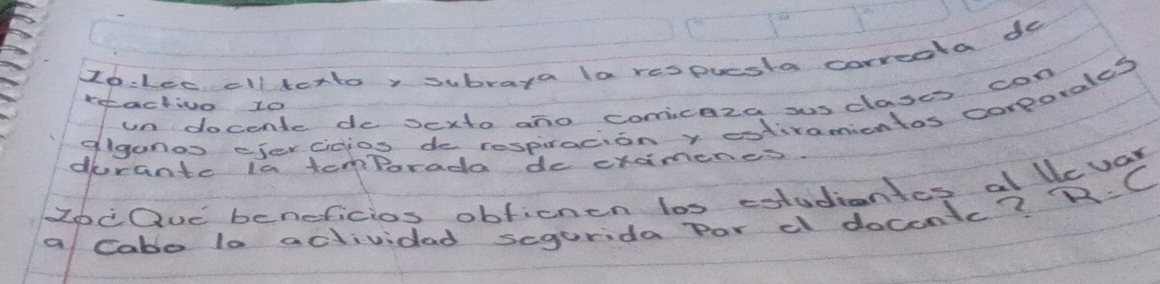 10: Lee el texto y subraya la respuesta correcta de
reactivo 10
un docente de sexto año comienza sus clases con
algunos ejercicios de respiración y estiramientos corporales
durante la temporada de exámenes.
10 ¿Qué beneficios obtienen los estudiantes al llevar
a cabo la actividad segurida por el docente? R=C